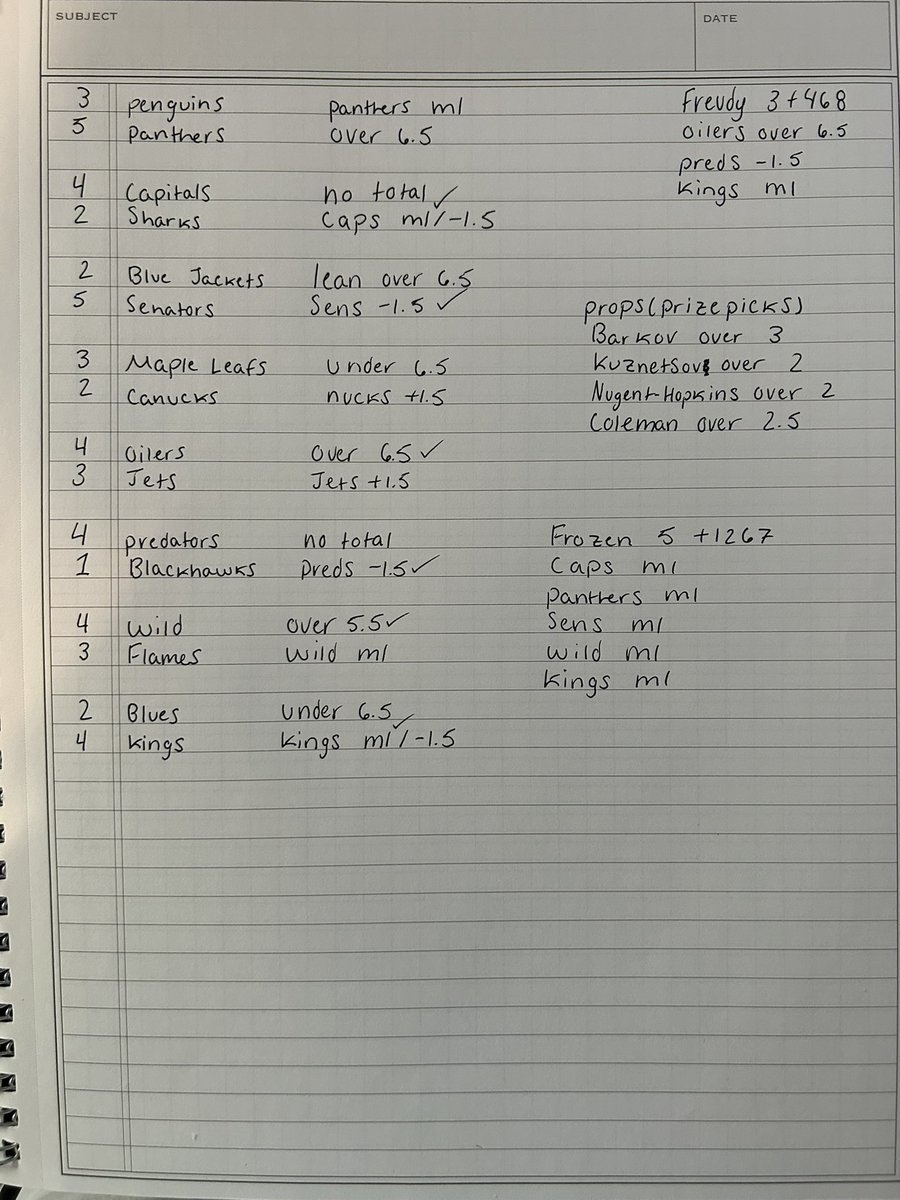 SUBJECT
DATE
3 penguins panthers ml
5 Panthers over 6.5
4 Capitals no total ✓
2 Sharks Caps ml/-1.5
2 Blue Jackets lean over 6.5
5 Senators Sens -1.5 ✓
3 Maple Leafs under 6.5
2 Canucks nucks +1.5
4 oilers over 6.5 ✓
3 Jets Jets +1.5
4 predators no total
1 Blackhawks Preds -1.5 ✓
4 Wild over 5.5 ✓
3 Flames Wild ml
2 Blues under 6.5
4 kings kings ml ✓/-1.5
Freudy 3 +468
oilers over 6.5
preds -1.5
kings ml
props(prizepicks)
Barkov over 3
Kuznetsov over 2
Nugent-Hopkins over 2
Coleman over 2.5
Frozen 5 +1267
Caps ml
panthers ml
Sens ml
wild ml
kings ml